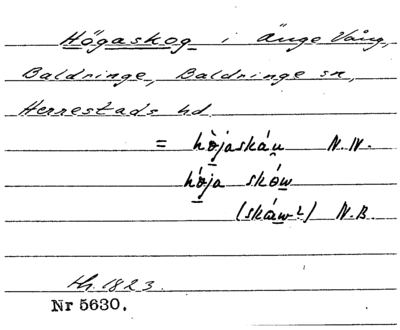 Högaskog i Änge Vång,
Baldringe, Baldringe sn,
Herrestads hd
= hòjaskáu̯ N.N.
hója sków
(skáw?) N.B.
Nr 5630.